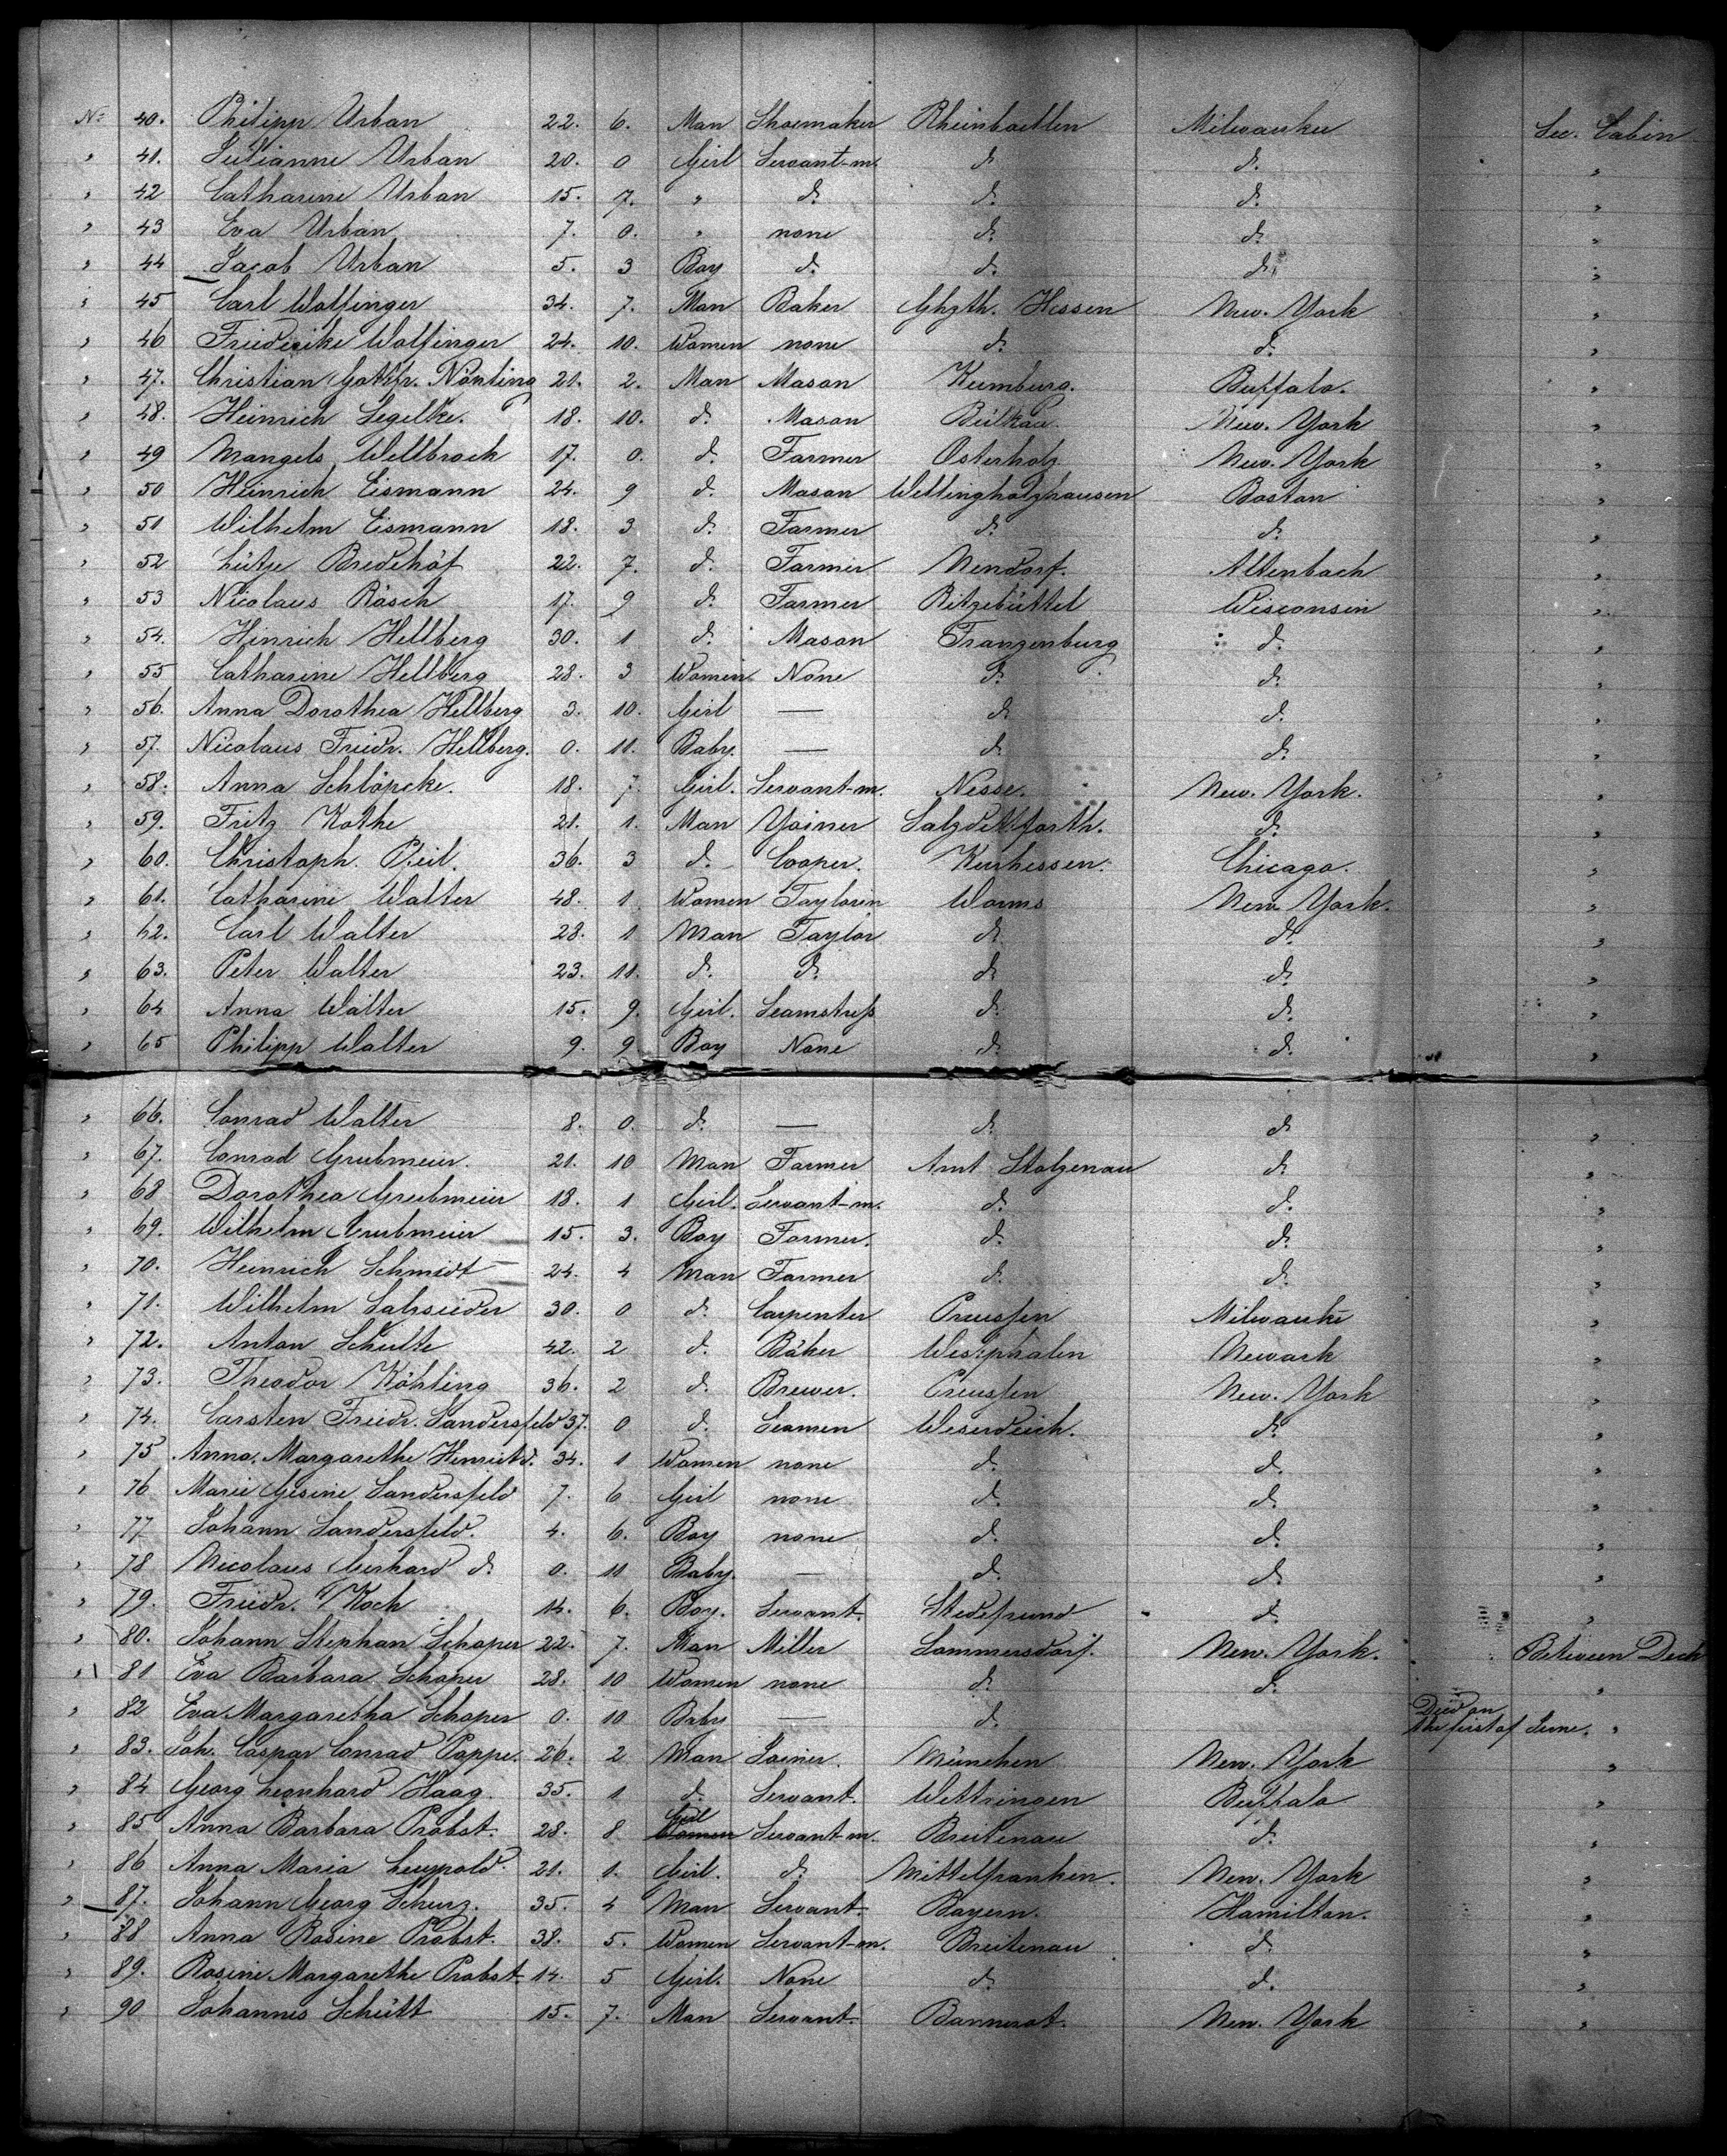 No. 40. Philipp Urban 22. 6. Man Shoemaker Rheinboellen Milwaukee Sec. Cabin
" 41. Julianne Urban 20. 0 Girl Servant-m. d. d. "
" 42 Catharine Urban 15. 7. " d. d. d. "
" 43 Eva Urban 7. 0. " none d. d. "
" 44 Jacob Urban 5. 3 Boy d. d. d. "
" 45 Carl Wolfinger 34. 7. Man Baker Ghzth. Hessen New. York "
" 46 Friederike Wolfinger 24. 10. Women none d. d. "
" 47. Christian Gottfr. Nönting 21. 2. Man Mason Kumburg. Buffalo. "
" 48. Heinrich Segelke. 18. 10. d. Mason Bülkau. New. York "
" 49 Mangels Wellbrock 17. 0. d. Farmer Osterholz New. York "
" 50 Heinrich Eismann 24. 9 d. Mason Wellingholzhausen Boston "
" 51 Wilhelm Eismann 18. 3 d. Farmer d. d. "
" 52 Lütje Bredehöf 22. 7. d. Farmer Nendorf. Altenbach "
" 53 Nicolaus Rösch 17. 9 d. Farmer Ritzebüttel Wisconsin "
" 54. Hinrich Hellberg 30. 1 d. Mason Franzenburg d. "
" 55 Catharine Hellberg 28. 3 Women None d. d. "
" 56. Anna Dorothea Hellberg 3. 10. Girl — d. d. "
" 57. Nicolaus Friedr. Hellberg. 0. 11. Baby. — d. d. "
" 58. Anna Schlöpcke. 18. 7 Girl. Servant-m. Nesse. New. York. "
" 59. Fritz Kothe 21. 1. Man Yoiner Salzdettfurth. d. "
" 60. Christoph. Peil. 36. 3 d. Cooper. Kurhessen. Chicago. "
" 61. Catharine Walter 48. 1 Women Taylorin Worms New York. "
" 62. Carl Walter 28. 1 Man Taylor d. d. "
" 63. Peter Walter 23. 11. d. d. d. d. "
" 64 Anna Walter 15. 9. Girl. Seamstress d. d. "
" 65 Philipp Walter 9. 9 Boy None d. d. "
" 66. Conrad Walter 8. 0. d. — d. d. "
" 67. Conrad Grubmeier. 21. 10 Man Farmer Amt Stolzenau d. "
" 68 Dorothea Grubmeier 18. 1 Girl. Servant-m. d. d. "
" 69. Wilhelm Grubmeier 15. 3. Boy Farmer. d. d. "
" 70. Heinrich Schmidt 24. 4 Man Farmer d. d. "
" 71. Wilhelm Salzsieder 30. 0 d. Carpenter Preussen Milwauke "
" 72. Anton Schulte 42. 2 d. Bäker Westphalen Newark "
" 73. Theodor Köhling 36. 2 d. Brewer. Preussen New. York "
" 74. Carsten Friedr. Sandersfeld 37. 0 d. Seamen Weserdeich. d. "
" 75 Anna. Margarethe Henriet d. 34. 1 Women none d. d. "
" 76 Marie Gesine Sandersfeld 7. 6 Girl none d. d. "
" 77 Johann Sandersfeld. 4. 6. Boy none d. d. "
" 78 Nicolaus Gerhard d. 0. 11 Baby. — d. d. "
" 79. Friedr. Koch 14. 6. Boy. Servant. Stedefrund d. "
" 80. Johann Stephan Schaper 22. 7. Man Miller Sommersdorf. New. York. Between Deck
" 81 Eva Barbara Schaper 28. 10 Women none d. d. "
" 82 Eva Margaretha Schaper 0. 10 Baby — d. Died on the first of June. "
" 83. Joh. Caspar Conrad Poppe. 26. 2 Man Joiner. München New. York "
" 84 Georg Leonhard Haag. 35. 1 d. Servant. Wettringen Buffalo "
" 85 Anna Barbara Probst. 28. 8 Women Girl Servant-m. Breitenau d. "
" 86 Anna Maria Leupold. 21. 1. Girl. d. Mittelfranken. New. York "
" 87. Johann Georg Schurz. 35. 4 Man Servant. Bayern. Hamilton. "
" 88 Anna Rosine Probst. 38. 5. Women Servant-m. Breitenau d. "
" 89. Rosine Margarethe Probst 14. 5 Girl. None d. d. "
" 90 Johannes Schütt 15. 7. Man Servant. Bannerot. New. York "